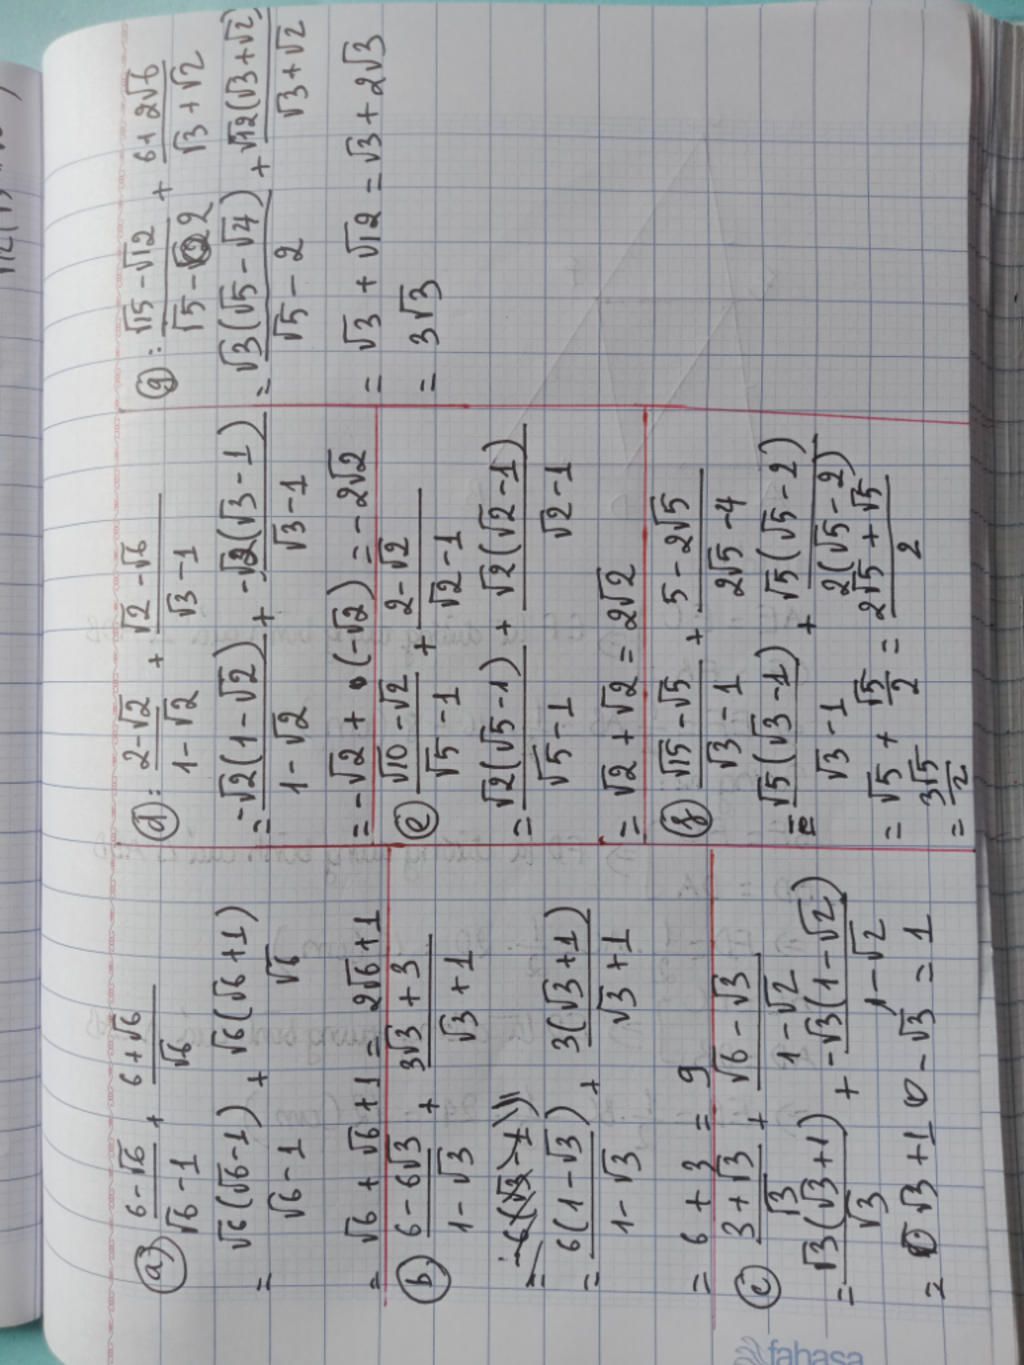 a) (6 - √6)/(√6 - 1) + (6 + √6)/√6
= √6(√6 - 1)/(√6 - 1) + √6(√6 + 1)/√6
= √6 + √6 + 1 = 2√6 + 1
b) (6 - 6√3)/(1 - √3) + (3√3 + 3)/(√3 + 1)
= 6(1 - √3)/(1 - √3) + 3(√3 + 1)/(√3 + 1)
= 6 + 3 = 9
c) (3 + √3)/√3 + (√6 - √3)/(1 - √2)
= √3(√3 + 1)/√3 + -√3(1 - √2)/(1 - √2)
= √3 + 1 - √3 = 1
d): (2 - √2)/(1 - √2) + (√2 - √6)/(√3 - 1)
= -√2(1 - √2)/(1 - √2) + -√2(√3 - 1)/(√3 - 1)
= -√2 + (-√2) = -2√2
e) (√10 - √2)/(√5 - 1) + (2 - √2)/(√2 - 1)
= √2(√5 - 1)/(√5 - 1) + √2(√2 - 1)/(√2 - 1)
= √2 + √2 = 2√2
f) (√15 - √5)/(√3 - 1) + (5 - 2√5)/(2√5 - 4)
= √5(√3 - 1)/(√3 - 1) + √5(√5 - 2)/2(√5 - 2)
= √5 + √5/2 = (2√5 + √5)/2
= 3√5/2
g): (√15 - √12)/(√5 - 2) + (6 + 2√6)/(√3 + √2)
= √3(√5 - √4)/(√5 - 2) + √12(√3 + √2)/(√3 + √2)
= √3 + √12 = √3 + 2√3
= 3√3
fahasa